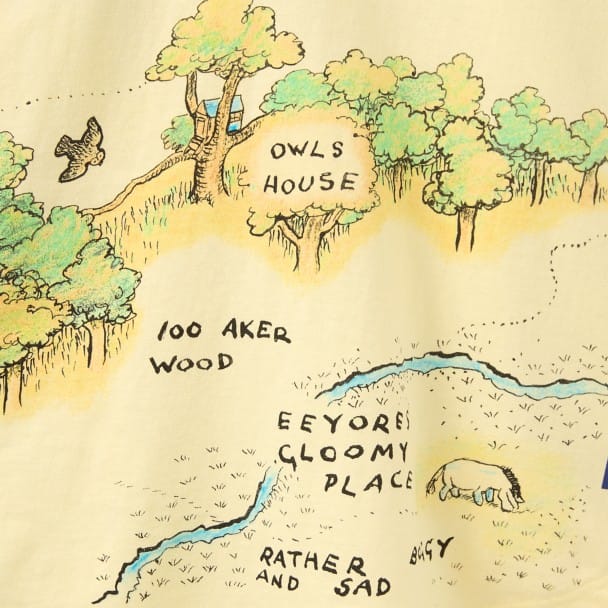 OWLS
HOUSE
100 AKER
WOOD
EEYORES
GLOOMY
PLACE
RATHER
BOGGY
AND SAD